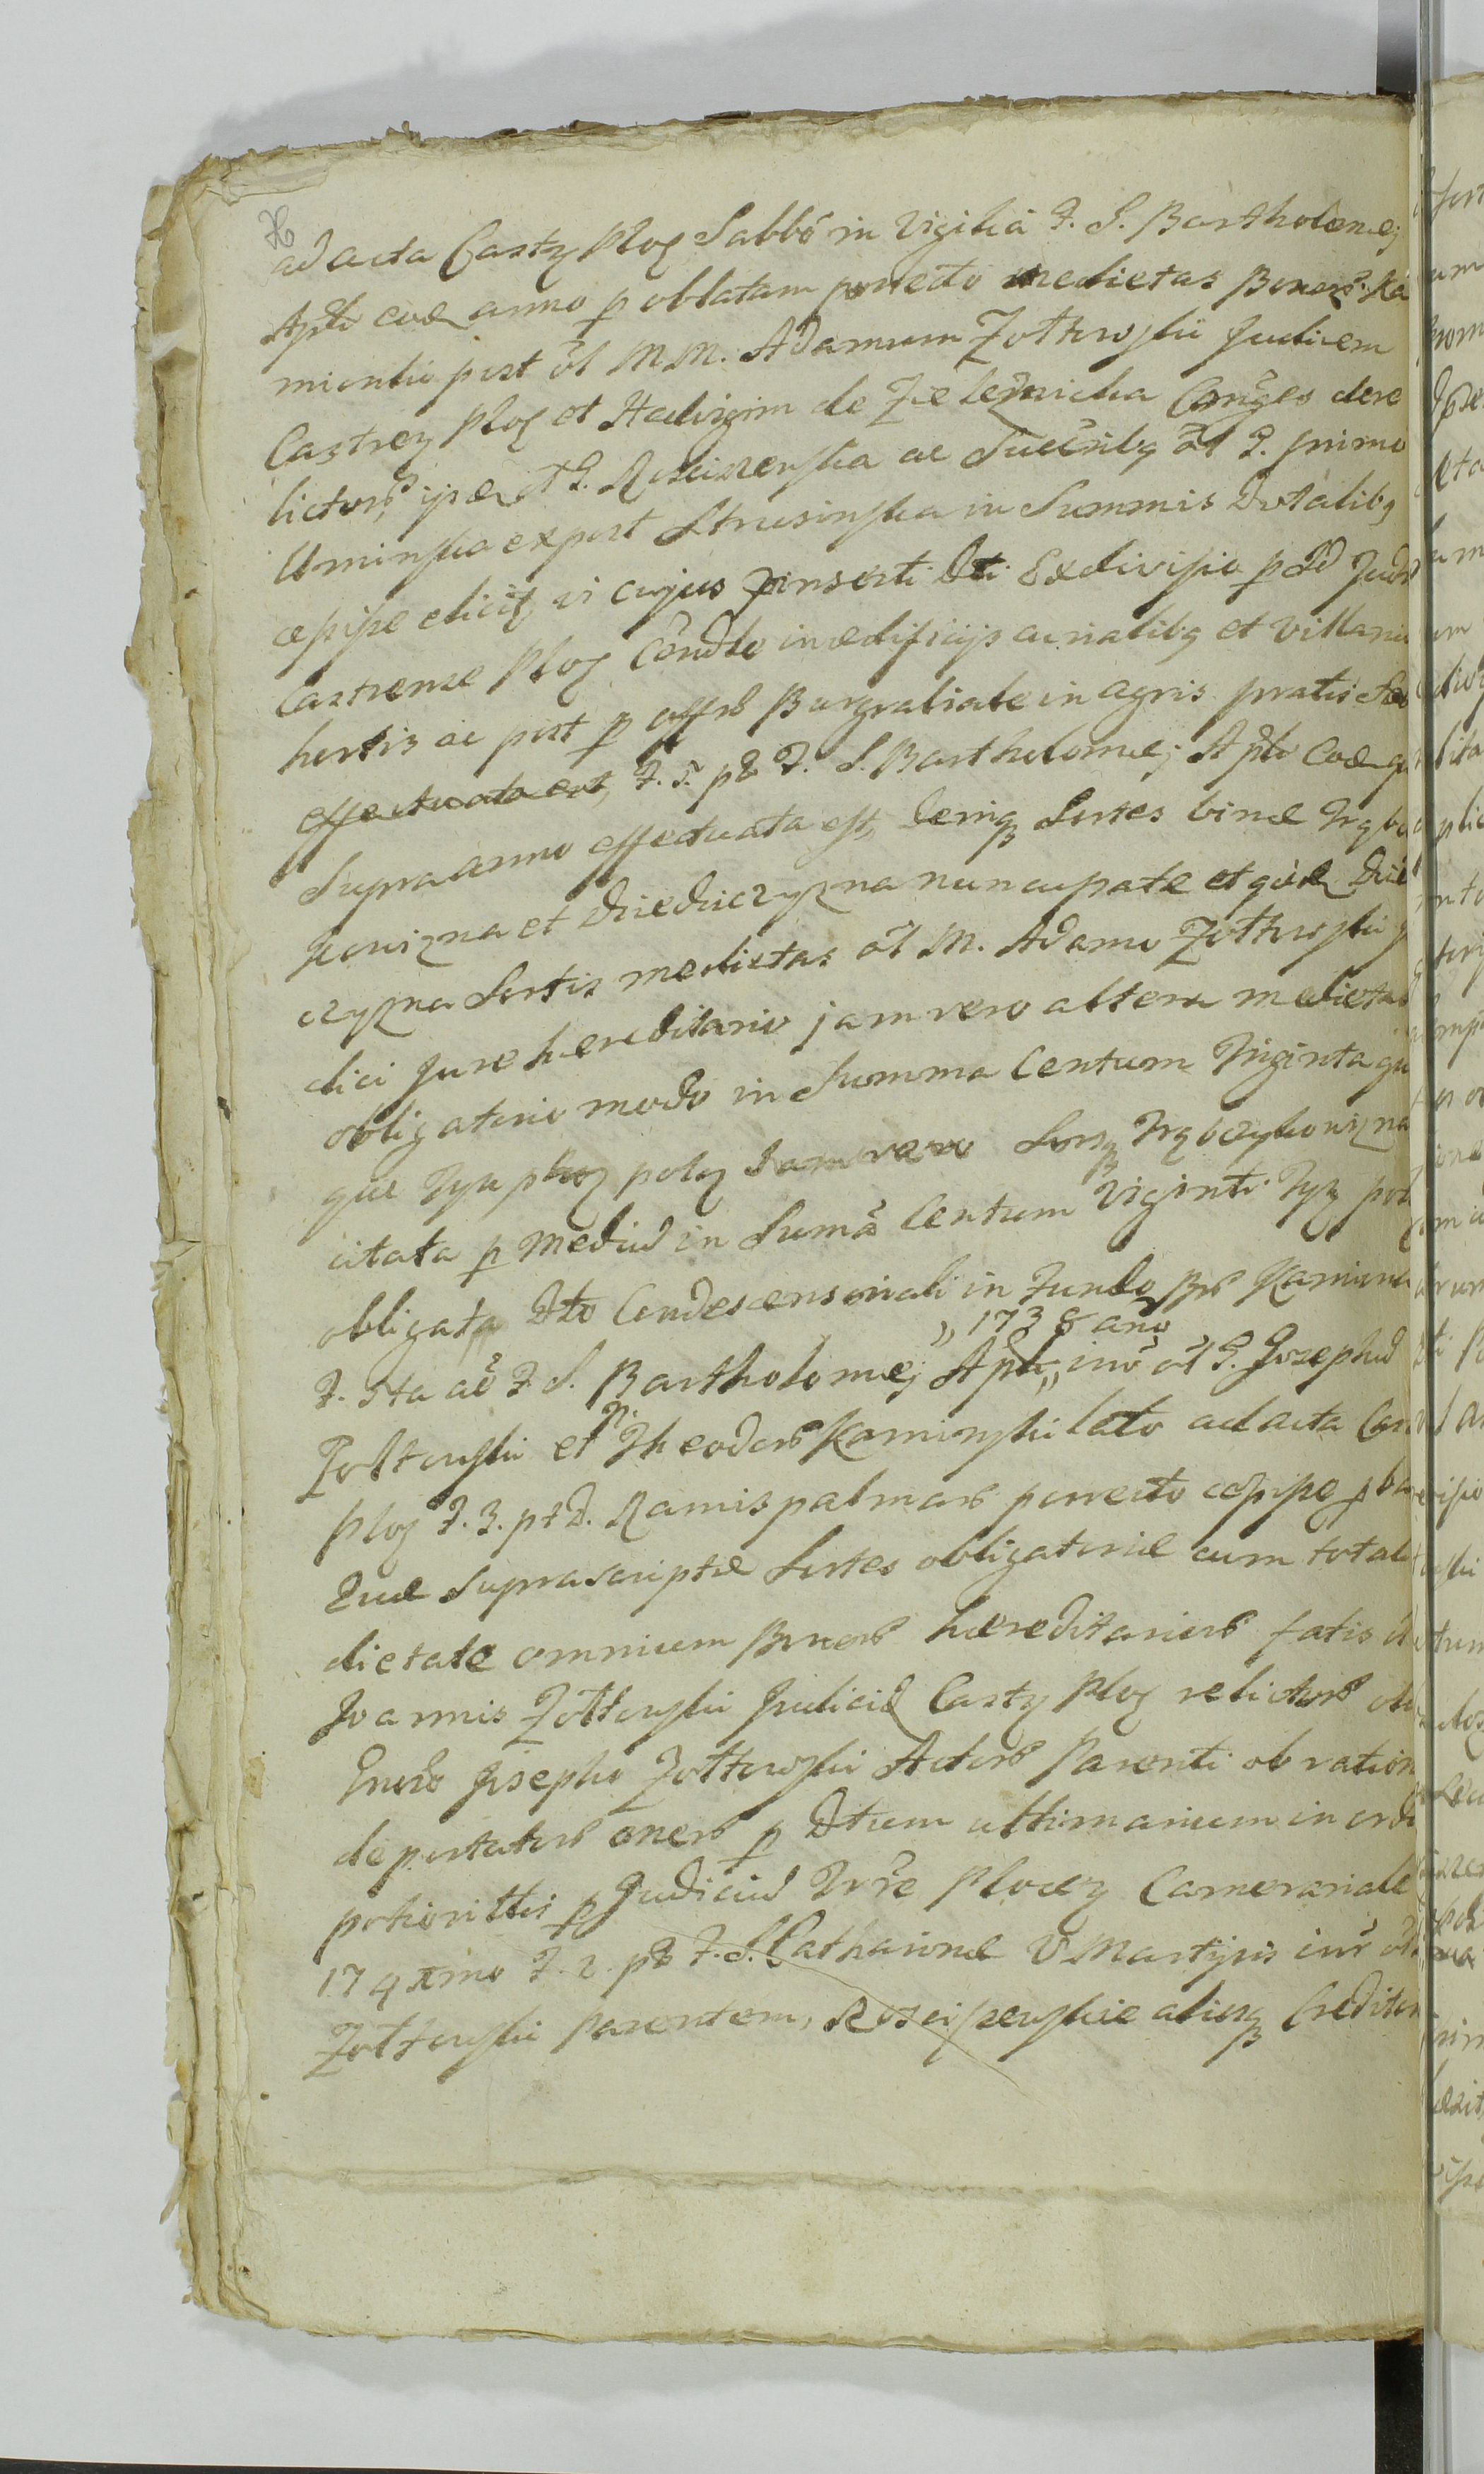 ad acta Castr Ploc Sabbo in Vigilia F. S. Bartholomej
Apli eod anno p oblatam porrecto medietas Bonor Ka
mionki post ol MM. Adamum Zołtowski Judicem
Castren Ploc et Hedvigim de Zieleznicka Conges dere
lictor, ipsa G. Rościszewska ac Succribq ol G. primo
Uminska expost Strusinska in Summis Dotalibq
cessisse elicit vi cujus inserti Dti Exdivisio p Jud
Castrense Ploc Condto in aedificijs curialibq et villani
hortis ac post p offm Burgrabiale in agris pratis
effectuata est, F. 5. pt F. S. Bartholomej Aplo eod q
Supra anno effectuata est, Deniq Sortes binae Trąb
kowizna et Dziedziczyzna nuncupatae et quid Dzie
czyzna Sortis medietas ol M. Adamo Zołtowski
dici Jure haereditario jam vero altera medietas
obligatorio modo in Summa Centum Triginta qu
que Tymphor pol Sorsq Trąbczykowizna
citata p mediu in Summa Centum Viginti Tym pol
obligata Dto Condescensoriali in Fundo Bor Kamionka
„1738 ano
F. 5ta ac F. S. Bartholomej Apli „ inr ol G. Josephu
Zołtowski et N. Theodor Kaminski lato ad acta Cas
Ploc F. 3. pt D. Ramispalmar porrecto cessisse pba
Quae Suprascriptae Sortes obligatoriae cum totali
dietate omnium Bonor haereditarior fatis
Joannis Zołtowski Judicis Castr Ploc relictor
Gnroso Josepho Zołtowski Actor Parenti ob ration
deportator oner p Dtum ultimarium in ordi
potioritatis p Judiciu Trre Plocen Camerariale
174 imo F. 2. pt F. S. Catharinae V Martyris inr
Zołtowski parentem, Rosciszewskie aliosq Creditor